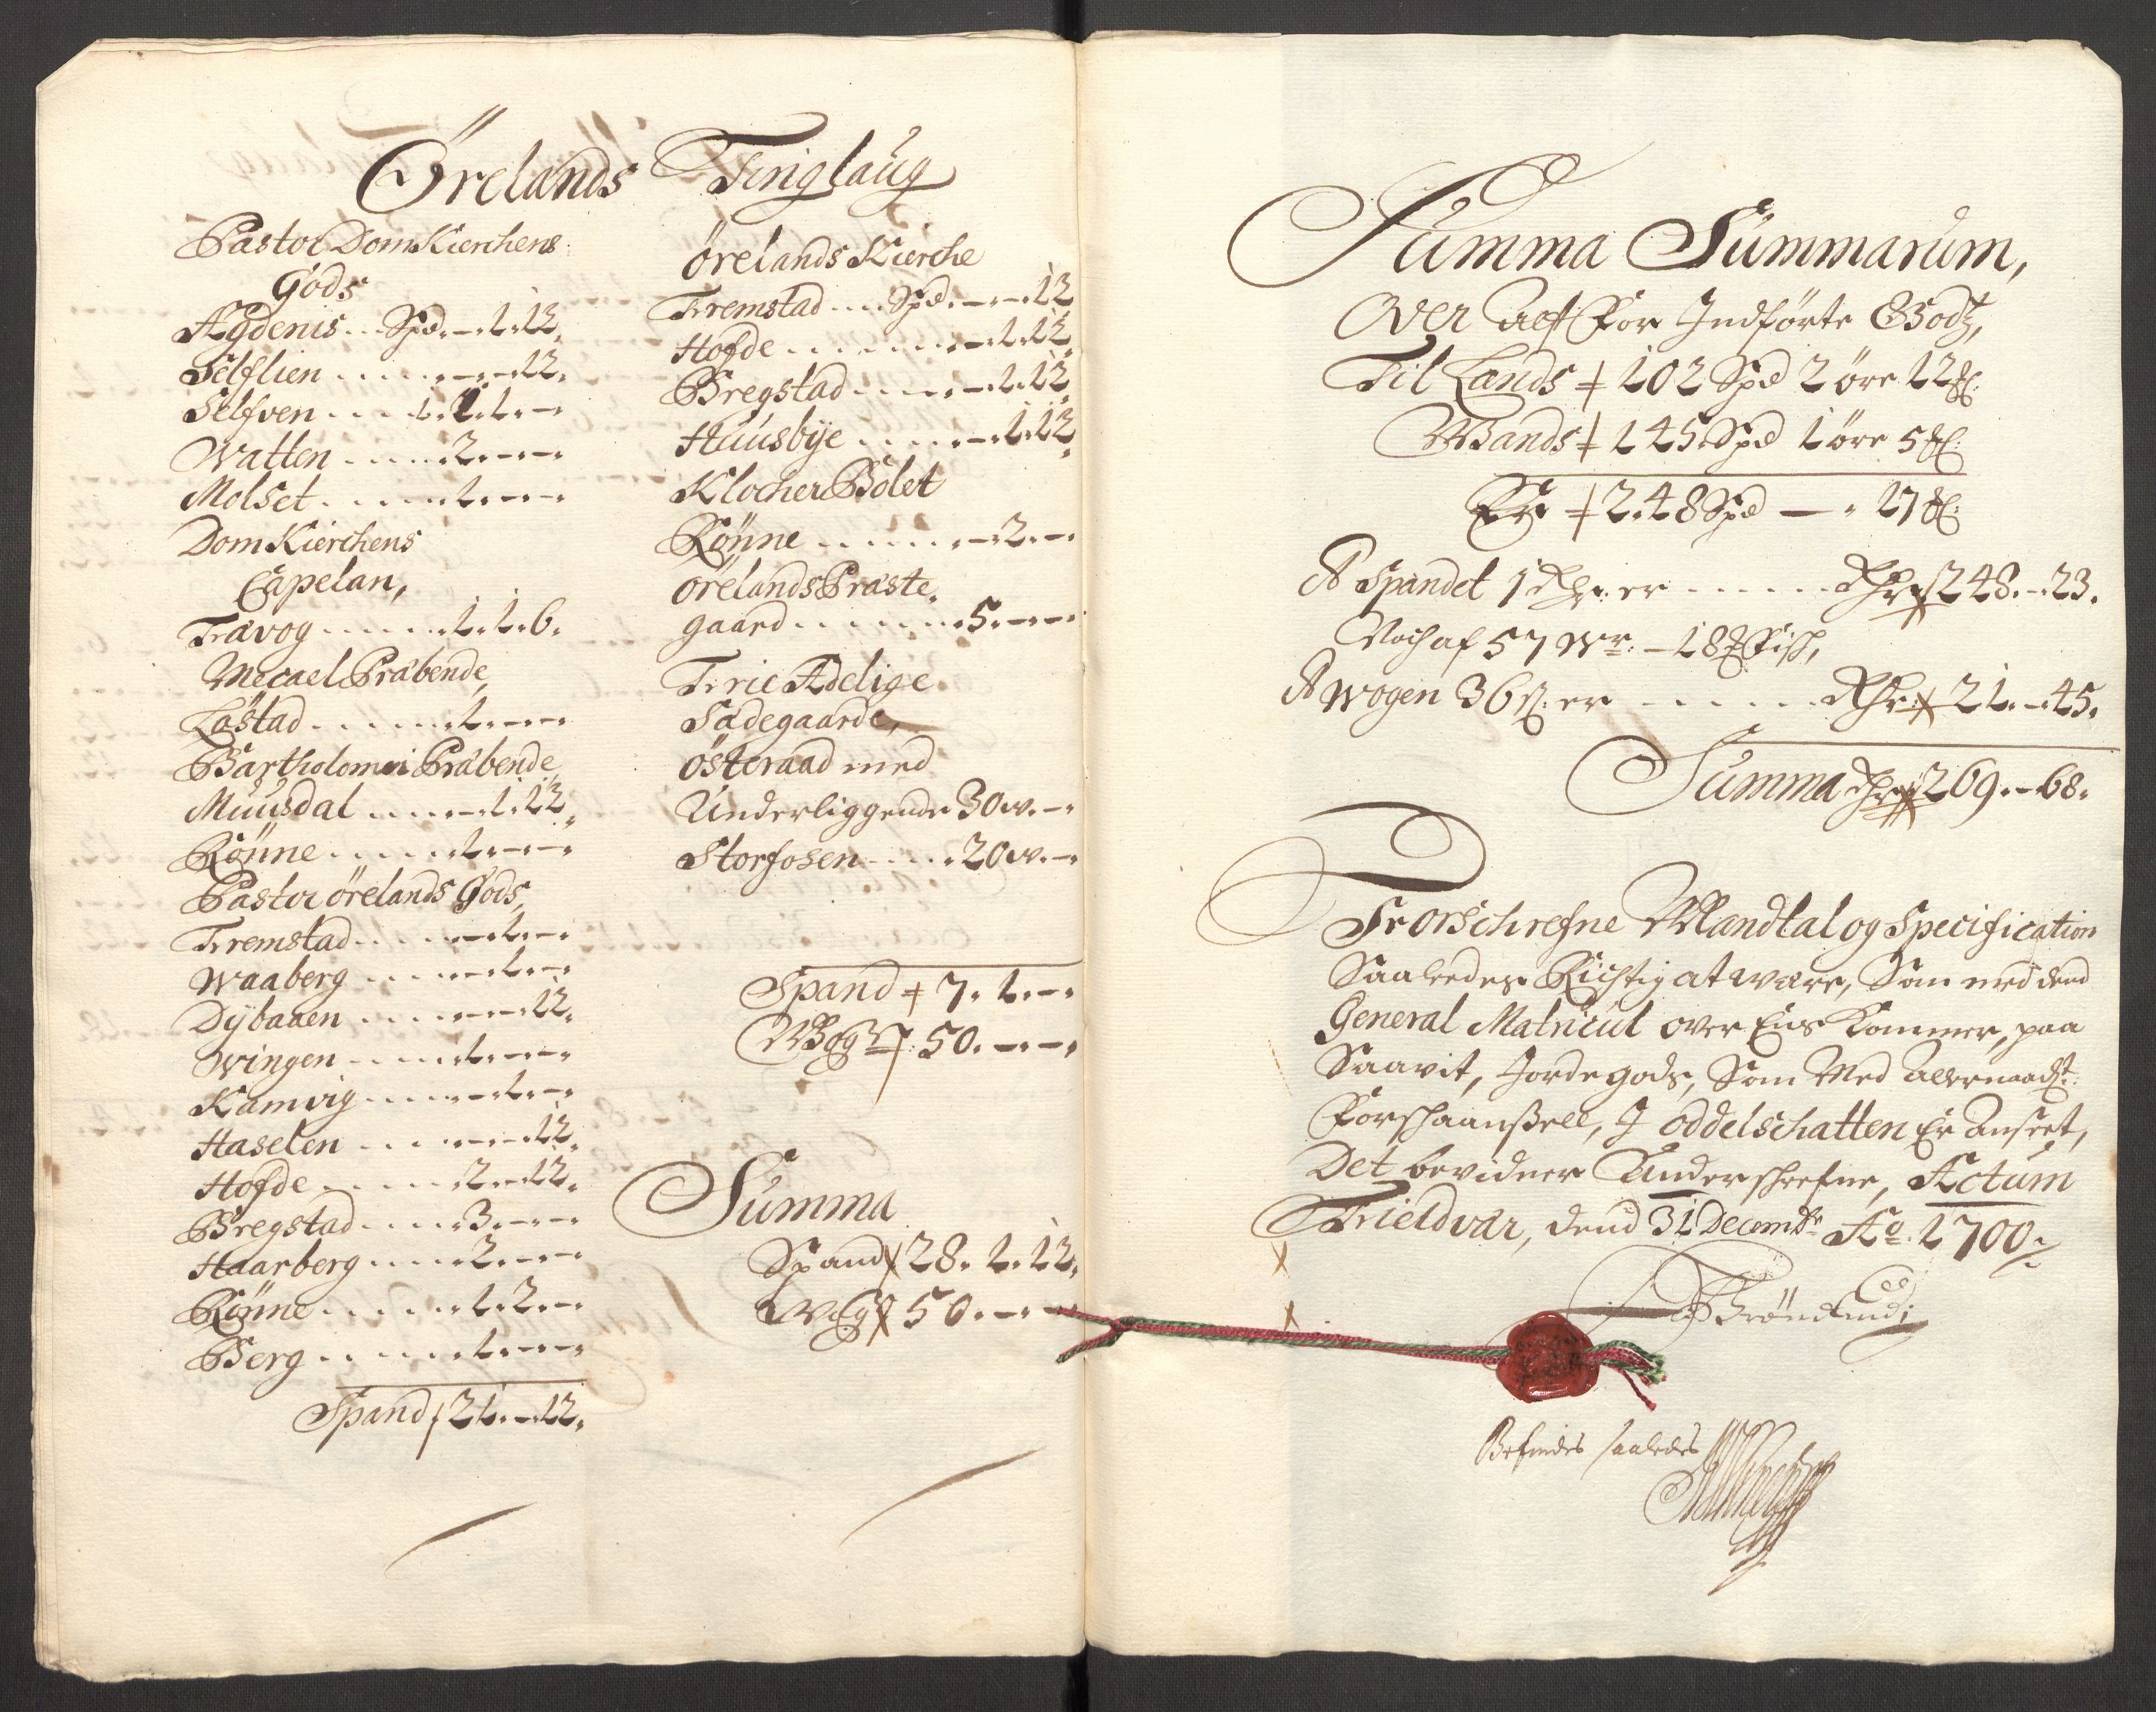 Örelands Tinglaug
Pastor DomKierchens
Gods
Agdenis .. Spd. - . 1. 12.
Selflien . . . . . - . - . 12.
Selfven . . . 1. 2. 1. -
Watten . . . . . 2. - . - . -
Molset . . . . . . 1. - . - . -
Dom Kierchens
Capelan,
Trævog . . . . . . 1. 1. 6.
Mecael Præbende,
Lostad . . . . . . 1. - . - . -
Bartholomei Præbende,
Muusdal . . . . . - . 1. 12.
Rönne . . . . . . 1. - . - . -
Pastor örelands Gods,
Fremstad . . . . . - . 1. - . -
Waaberg . . . . . - . 1. - . -
Dÿbaaen . . . . . - . - . 12.
Wingen . . . . . 1. - . - . -
Kamvig . . . . . - . 1. - . -
Haselen . . . . . - . - . 12.
Hofde . . . . . . 2. - . 12.
Bregstad . . . . 3. - . - . -
Haarberg . . . . . 2. - . - . -
Rönne . . . . . . 1. 2. - . -
Berg . . . . . . . 1. - . - . -
Spand 21. - . 12.
örelands Kierche
Fremstad . . . Spd. - . - . 12
Hofde . . . . . . . - . 1. 12.
Bregstad . . . . . - . 1. 12.
Huusbÿe . . . . . - . 1. 12.
Klocher Bolet
Rönne . . . . . . . - . 2. - . -
örelands Præste,
gaard . . . . . . . . 5. - . - . -
Frie Adelige
Sædegaarde,
österaad med
Underliggende 30 w. - .
Storfosen . . . . . 20 w. - .
Spand 7. 1. - . -
Wog 50. - . - .
Summa
Spand 28. 1. 12.
Wog 50. - . - .
Summa Summarum,
Over alt For Indförte Godtz,
Til Lands 102 Spd 2 öre 12
Wands 145 Spd 1 öre 5
Er 248 Spd — . 17
A Spandet 1 Rdr: er . . . . . . Rdr 248. - . 23.
Noch af 57 Wr: - 18 Fisch,
A Wogen 36 s. er . . . . . . Rdr 21. - . 45.
Summa Rdr 269. - 68.
Forschrefne Mandtal og Specification
Saaledes Richtig at were, Som med dend
General Matricul over Eins Kommer, paa
Saavit, Jordegods, Som Med allernaadst:
Forschaansell, I oddelschatten Er anseet,
Det bevidner Underschrefne, Actum
Trieldvær, dend 31 Decembr Ao. 1700
Befindes saaledes